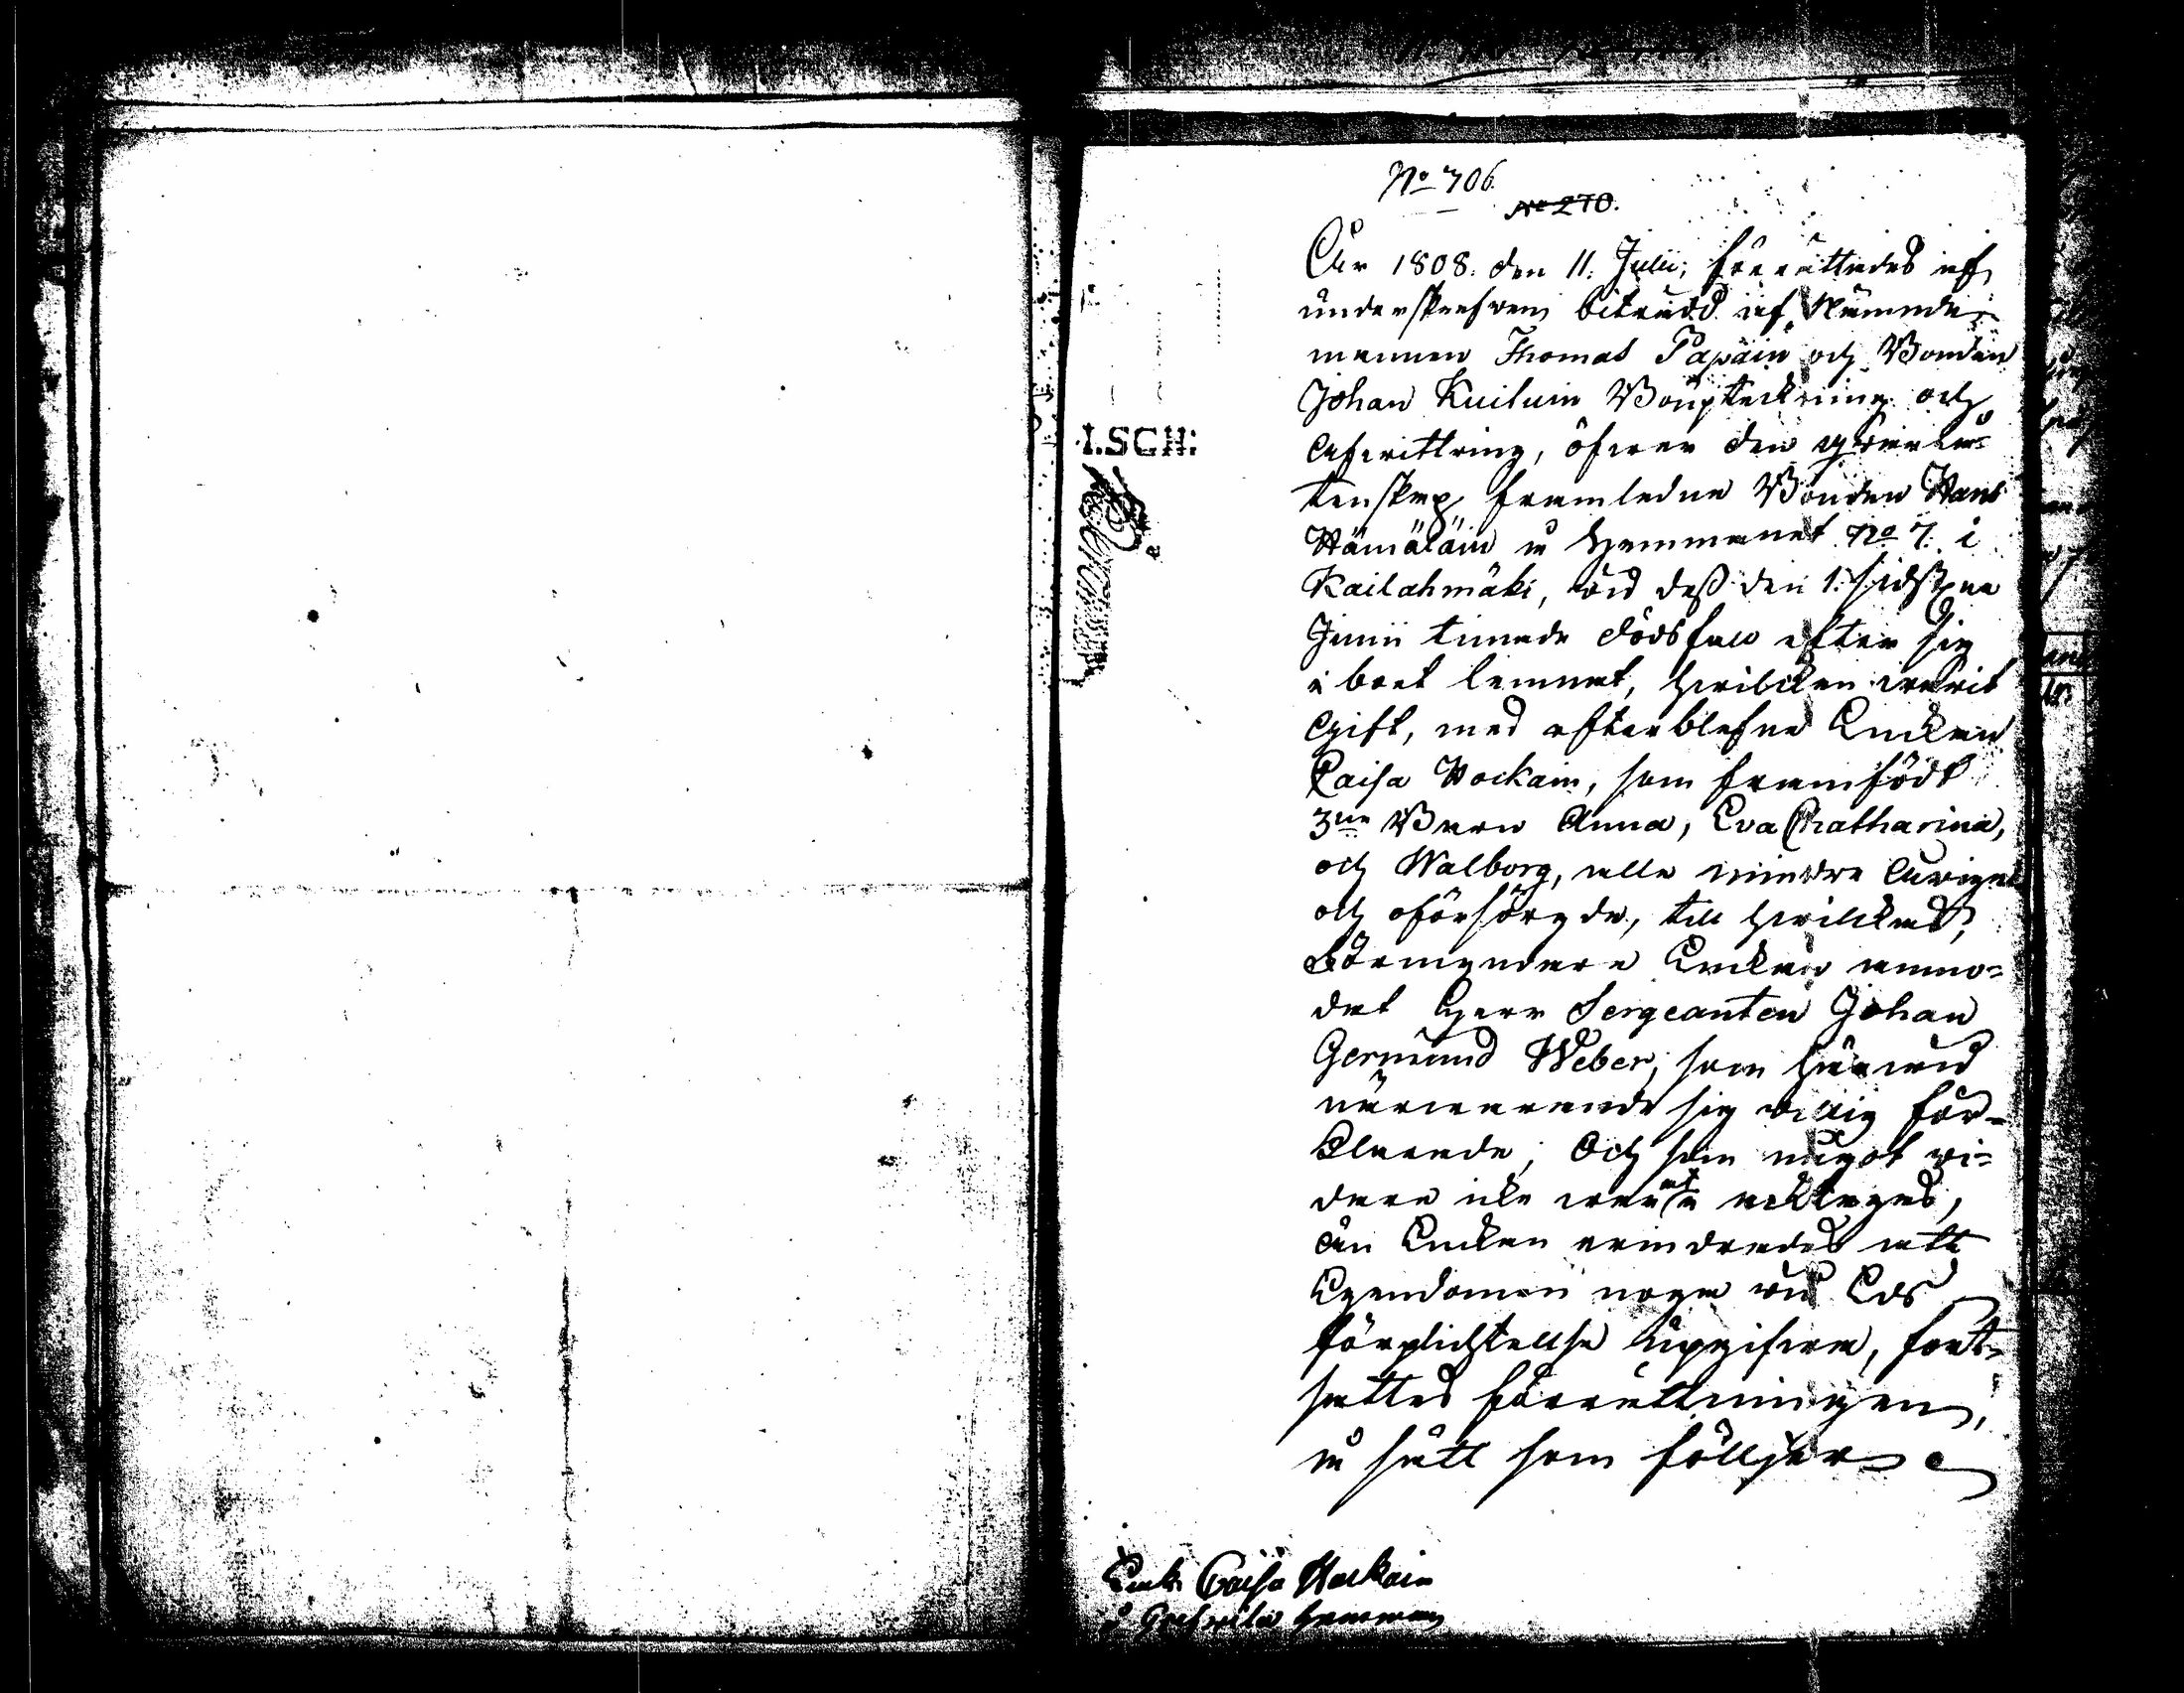 No 706.
No 270.
Åhr 1808. den 11. Julii, förrättades af
underskrefwen biträdd af Nämnde-
mannen Thomas Papäin och Bonden
Johan Kuiluin Bouptekning och
Afwittring, öfwer den qwarlå-
tenskap framledne Bonden Hans
Hämäläin å Hemmanet No 7. i
Kailahmäki, wid dess den 1. sidstne
Junii timade dödsfall efter sig
i boet lemnat, hwilcken warit
Gift, med efterblefne Enckan
Caisa Hockain, som framfödt
3ne Barn Anna, Eva Chatharina,
och Walborg, alla mindre åriga
och oförsörgde, till hwilckas,
Förmyndare Enckan anmo-
dat Herr Sergeanten Johan
Germund Weber, som härwid
närwarande sig willig för-
klarade; Och som något wi-
dare icke war at aktagas,
än Enckan erindrades att
Egendomen noga wid Eds
förplichtellse uppgifwa, fort-
sattes förrättningen,
å sätt som följer
I.SCH:
Enk. Caisa Hockain